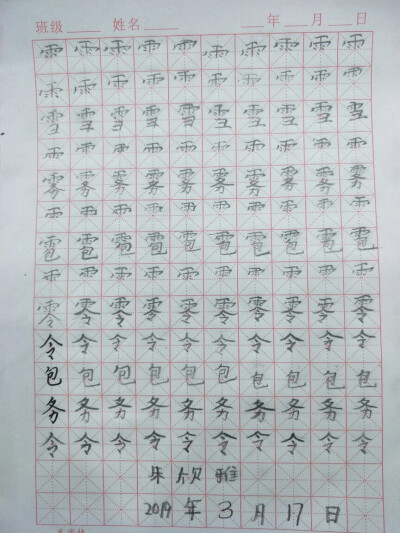 班级 姓名 年 月 日
雨 雨 雨 雨 雨 雨 雨 雨 雨 雨
雨 雨 雨 雨 雨 雨 雨 雨 雨 雨
雪 雪 雪 雪 雪 雪 雪 雪 雪 雪
雨 雨 雨 雨 雨 雨 雨 雨 雨 雨
雾 雾 雾 雾 雾 雾 雾 雾 雾 雾
雨 雨 雨 雨 雨 雨 雨 雨 雨 雨
雹 雹 雹 雹 雹 雹 雹 雹 雹 雹
雨 雨 雨 雨 雨 雨 雨 雨 雨 雨
零 零 零 零 零 零 零 零 零 零
令 令 令 令 令 令 令 令 令 令
包 包 包 包 包 包 包 包 包 包
务 务 务 务 务 务 务 务 务 务
令 令 令 令 令 令 令 令 令 令
朱 欣 雅
2019 年 3 月 17 日